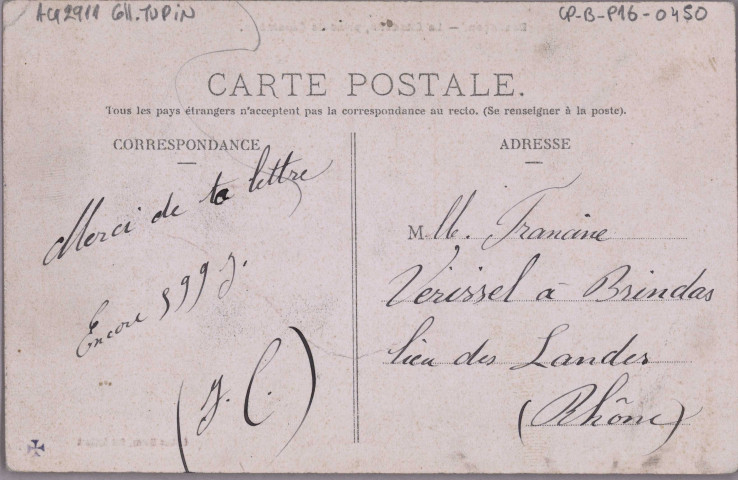 AG2911 GH.TUPIN
CP-B-P16-0450
CARTE POSTALE.
Tous les pays étrangers n'acceptent pas la correspondance au recto. (Se renseigner à la poste).
CORRESPONDANCE
Merci de ta lettre
Encore 599 j.
(J. C.)
ADRESSE
M. Francine
Vérissel à Brindas
lieu des Landes
(Rhône)